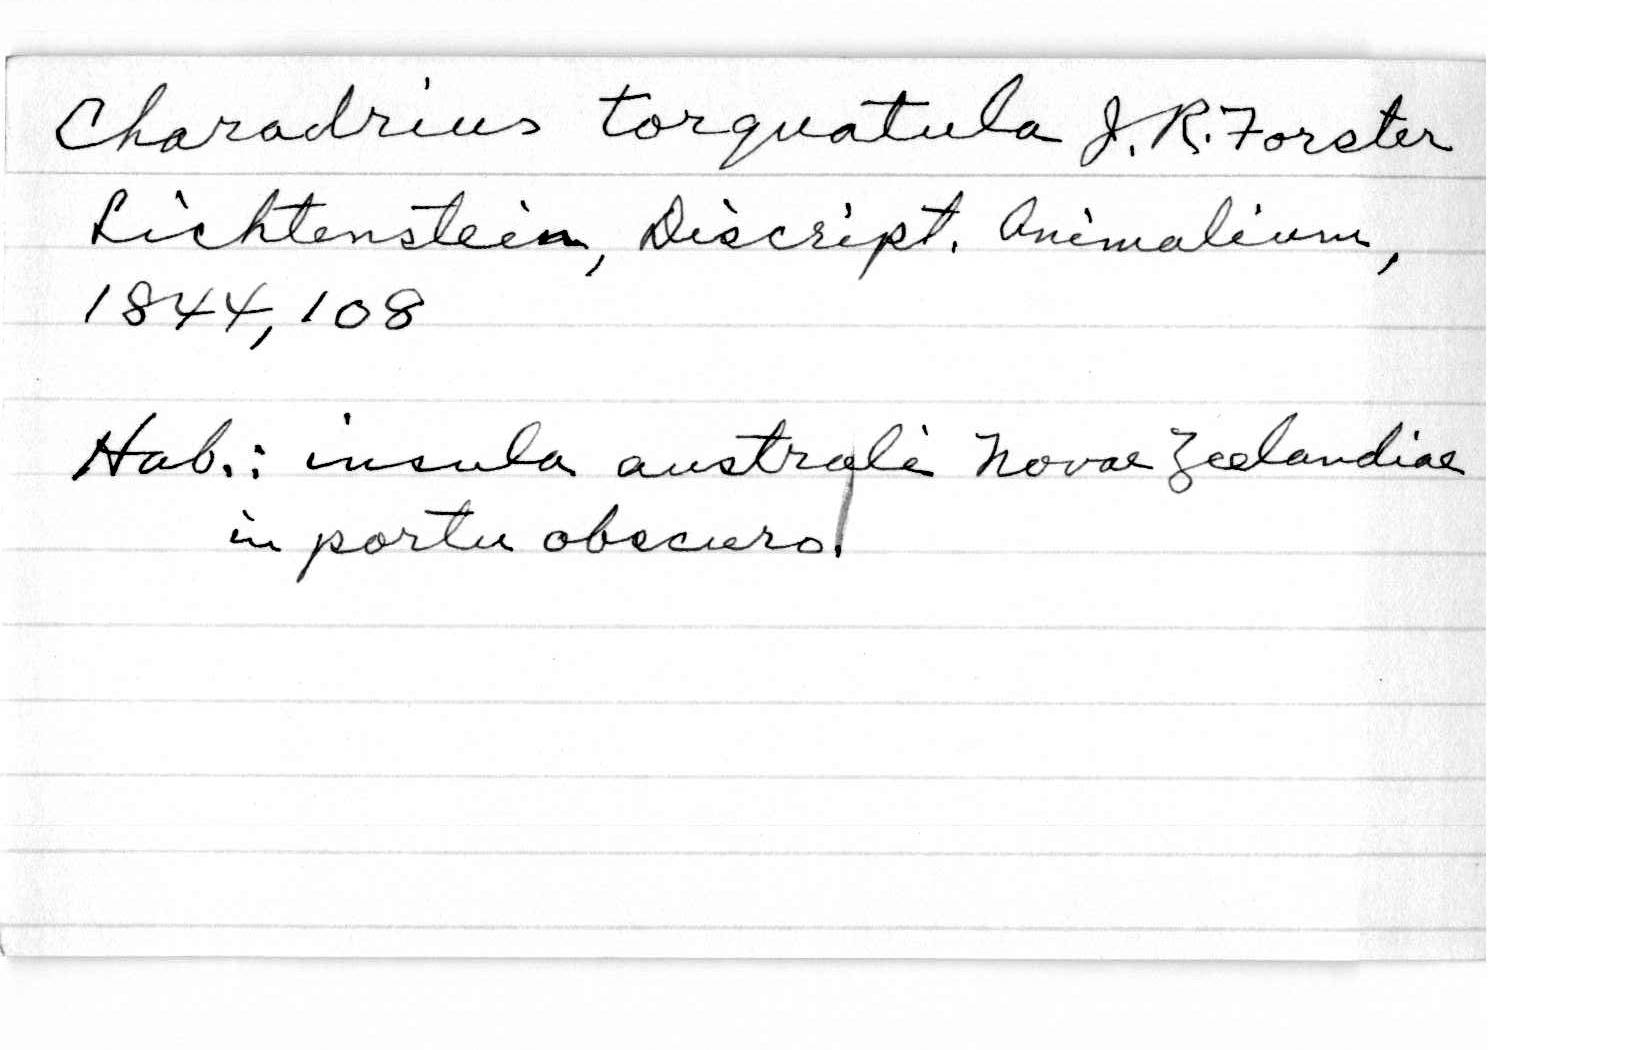 Charadrius torquatula J. R. Forster
Lichtenstein, Discript. Animalium,
1844, 108
Hab.: insula australi Novae Zeelandiae
in portu obscuro.